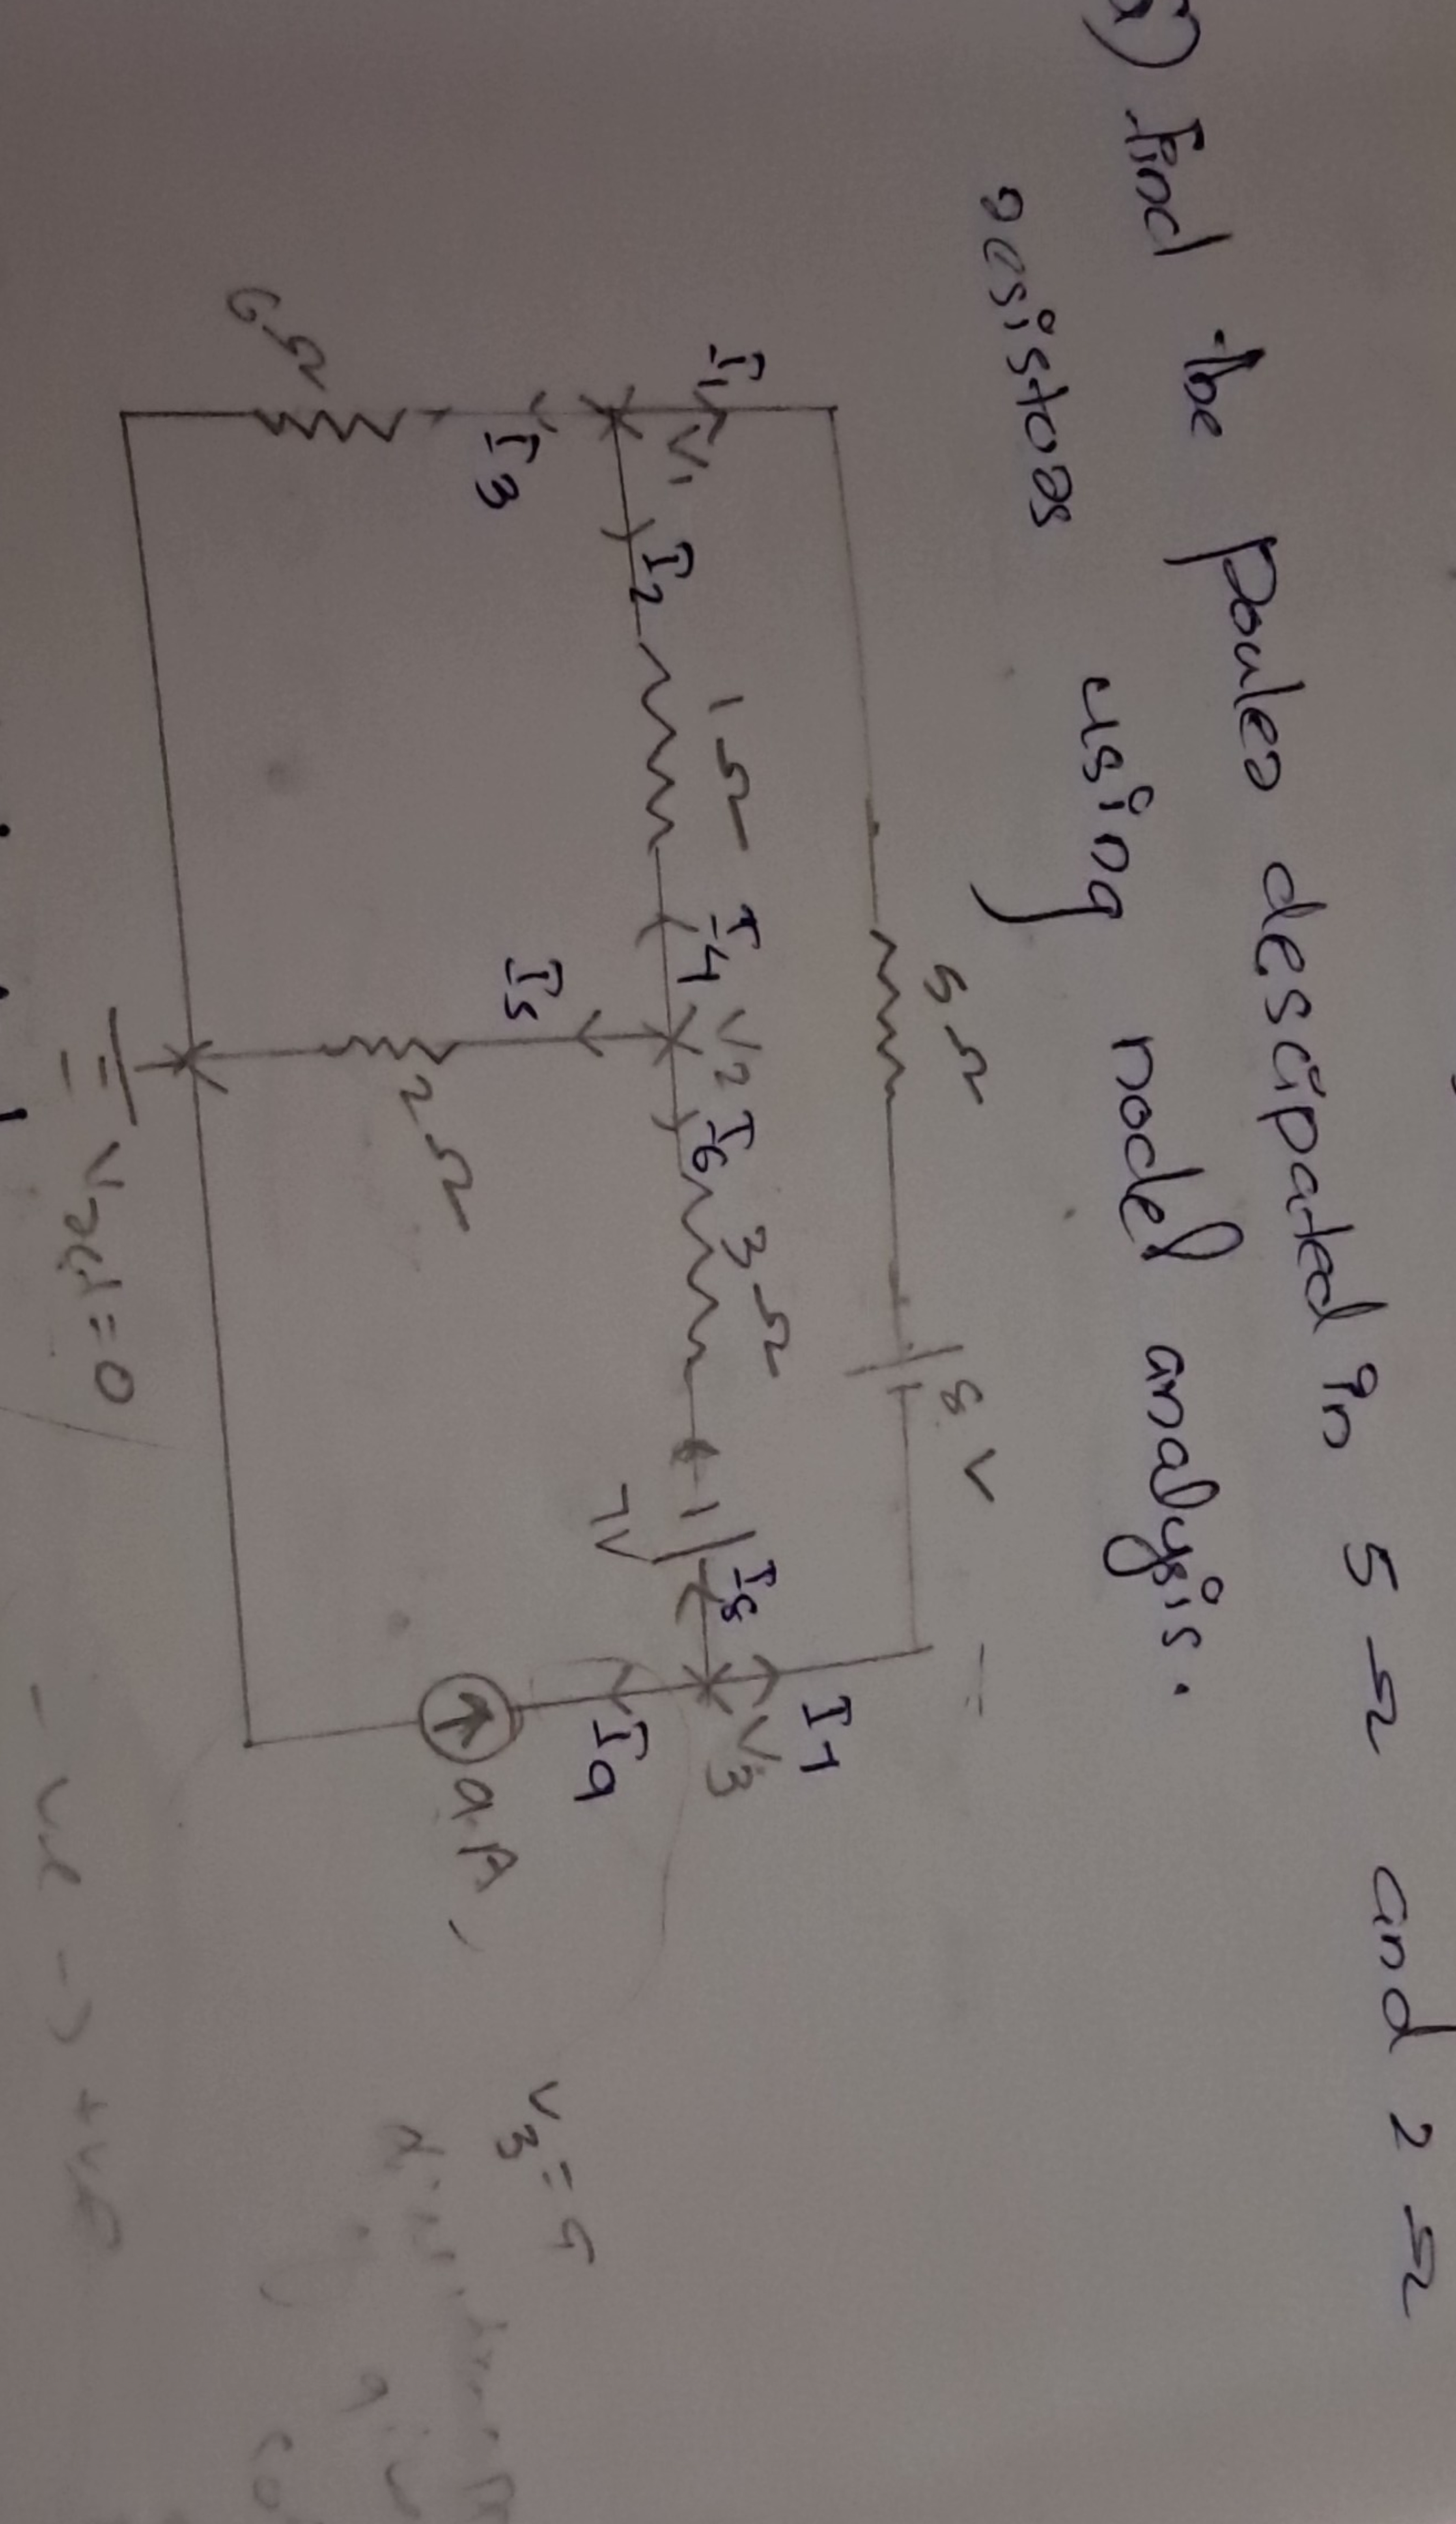 Find the power descipated in 5 Ω and 2 Ω
resistors using nodel analysis.
5 Ω
8 V
I1
V1
I2
1 Ω
I4
V2
I6
3 Ω
7V
I8
V3
I7
I3
I5
I9
6Ω
2 Ω
9 A
Vref = 0
V3 =
-ve → +ve